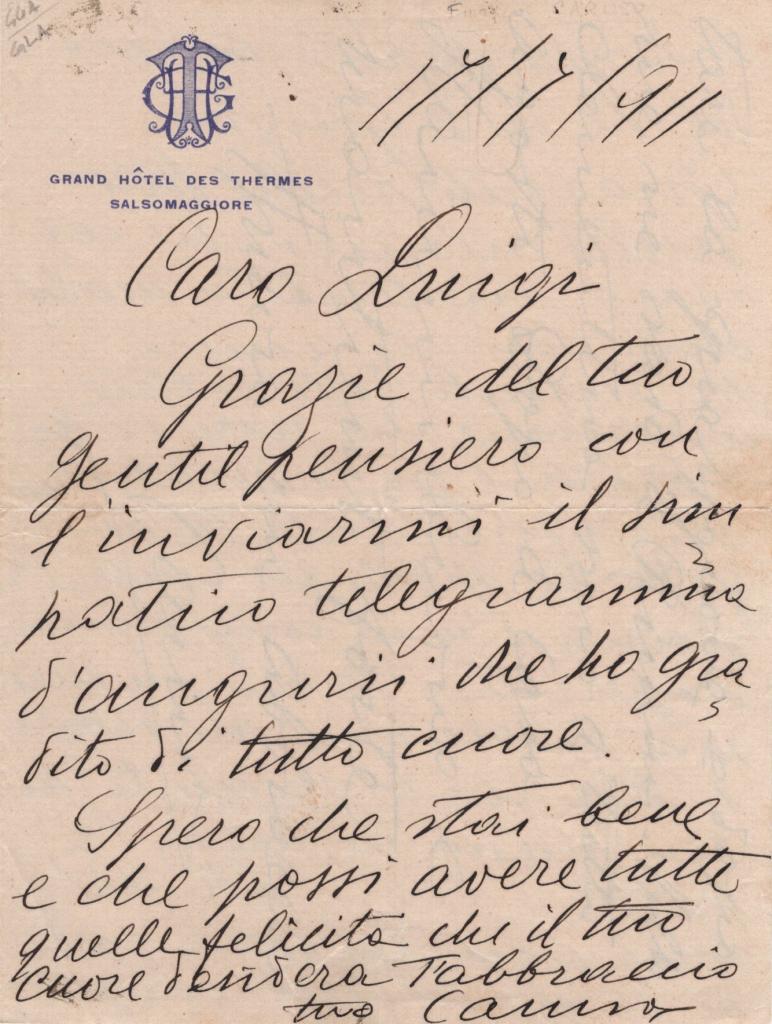 GLA
GLA
17/7/911
GRAND HÔTEL DES THERMES
SALSOMAGGIORE
Caro Luigi
Grazie del tuo
gentil pensiero con
l'inviarmi il sim
patico telegramma
d'augurii che ho gra
dito di tutto cuore.
Spero che stai bene
e che possi avere tutte
quelle felicità che il tuo
cuore desidera T'abbraccio
tuo Caruso